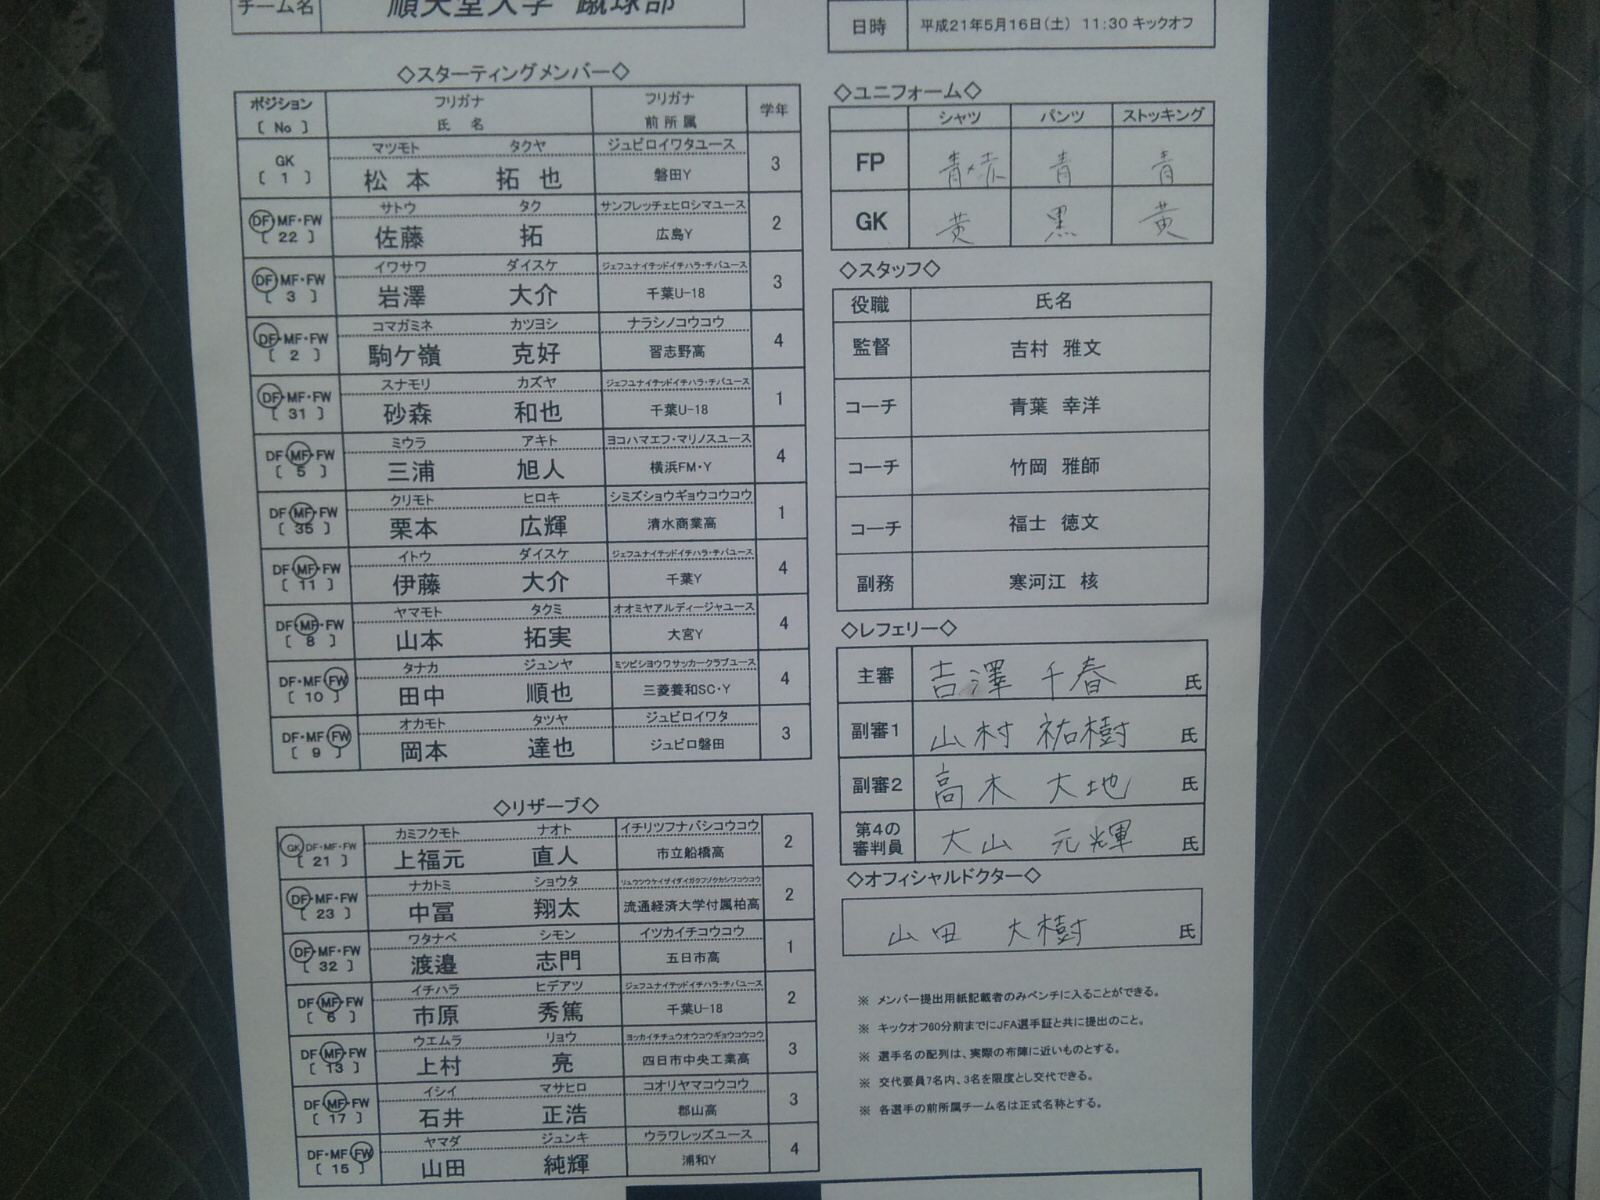 チーム名 順天堂大学 蹴球部
日時 平成21年5月16日(土) 11:30 キックオフ
◇スターティングメンバー◇
ポジション [ No ] フリガナ 氏 名 フリガナ 前所属 学年
マツモト タクヤ ジュビロイワタユース
GK [ 1 ] 松本 拓也 磐田Y 3
サトウ タク サンフレッチェヒロシマユース
DF・MF・FW [ 22 ] 佐藤 拓 広島Y 2
イワサワ ダイスケ ジェフユナイテッドイチハラ・チバユース
DF・MF・FW [ 3 ] 岩澤 大介 千葉U-18 3
コマガミネ カツヨシ ナラシノコウコウ
DF・MF・FW [ 2 ] 駒ケ嶺 克好 習志野高 4
スナモリ カズヤ ジェフユナイテッドイチハラ・チバユース
DF・MF・FW [ 31 ] 砂森 和也 千葉U-18 1
ミウラ アキト ヨコハマエフ・マリノスユース
DF・MF・FW [ 5 ] 三浦 旭人 横浜FM・Y 4
クリモト ヒロキ シミズショウギョウコウコウ
DF・MF・FW [ 35 ] 栗本 広輝 清水商業高 1
イトウ ダイスケ ジェフユナイテッドイチハラ・チバユース
DF・MF・FW [ 11 ] 伊藤 大介 千葉Y 4
ヤマモト タクミ オオミヤアルディージャユース
DF・MF・FW [ 8 ] 山本 拓実 大宮Y 4
タナカ ジュンヤ ミツビショウワサッカークラブユース
DF・MF・FW [ 10 ] 田中 順也 三菱養和SC・Y 4
オカモト タツヤ ジュビロイワタ
DF・MF・FW [ 9 ] 岡本 達也 ジュビロ磐田 3
◇リザーブ◇
カミフクモト ナオト イチリツフナバシコウコウ
GK・DF・MF・FW [ 21 ] 上福元 直人 市立船橋高 2
ナカトミ ショウタ リュウツウケイザイダイガクフゾクカシワコウコウ
DF・MF・FW [ 23 ] 中冨 翔太 流通経済大学付属柏高 2
ワタナベ シモン イツカイチコウコウ
DF・MF・FW [ 32 ] 渡邉 志門 五日市高 1
イチハラ ヒデアツ ジェフユナイテッドイチハラ・チバユース
DF・MF・FW [ 6 ] 市原 秀篤 千葉U-18 2
ウエムラ リョウ ヨッカイチチュウオウコウギョウコウコウ
DF・MF・FW [ 13 ] 上村 亮 四日市中央工業高 3
イシイ マサヒロ コオリヤマコウコウ
DF・MF・FW [ 17 ] 石井 正浩 郡山高 3
ヤマダ ジュンキ ウラワレッズユース
DF・MF・FW [ 15 ] 山田 純輝 浦和Y 4
◇ユニフォーム◇
シャツ パンツ ストッキング
FP 青×赤 青 青
GK 黄 黒 黄
◇スタッフ◇
役職 氏名
監督 吉村 雅文
コーチ 青葉 幸洋
コーチ 竹岡 雅師
コーチ 福士 徳文
副務 寒河江 核
◇レフェリー◇
主審 吉澤 千春 氏
副審1 山村 祐樹 氏
副審2 高木 大地 氏
第4の審判員 大山 元輝 氏
◇オフィシャルドクター◇
山田 大樹 氏
※ メンバー提出用紙記載者のみベンチに入ることができる。
※ キックオフ60分前までにJFA選手証と共に提出のこと。
※ 選手名の配列は、実際の布陣に近いものとする。
※ 交代要員7名内、3名を限度とし交代できる。
※ 各選手の前所属チーム名は正式名称とする。